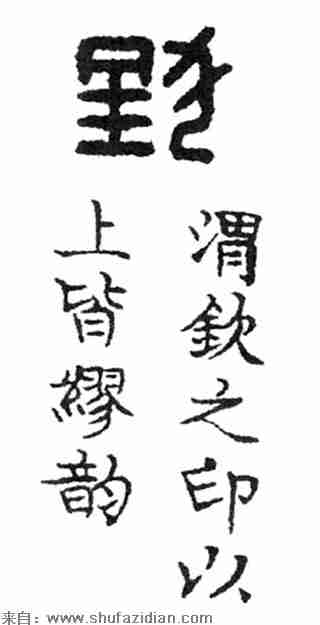 渭欽之印以
上皆繆韵
来自：www.shufazidian.com